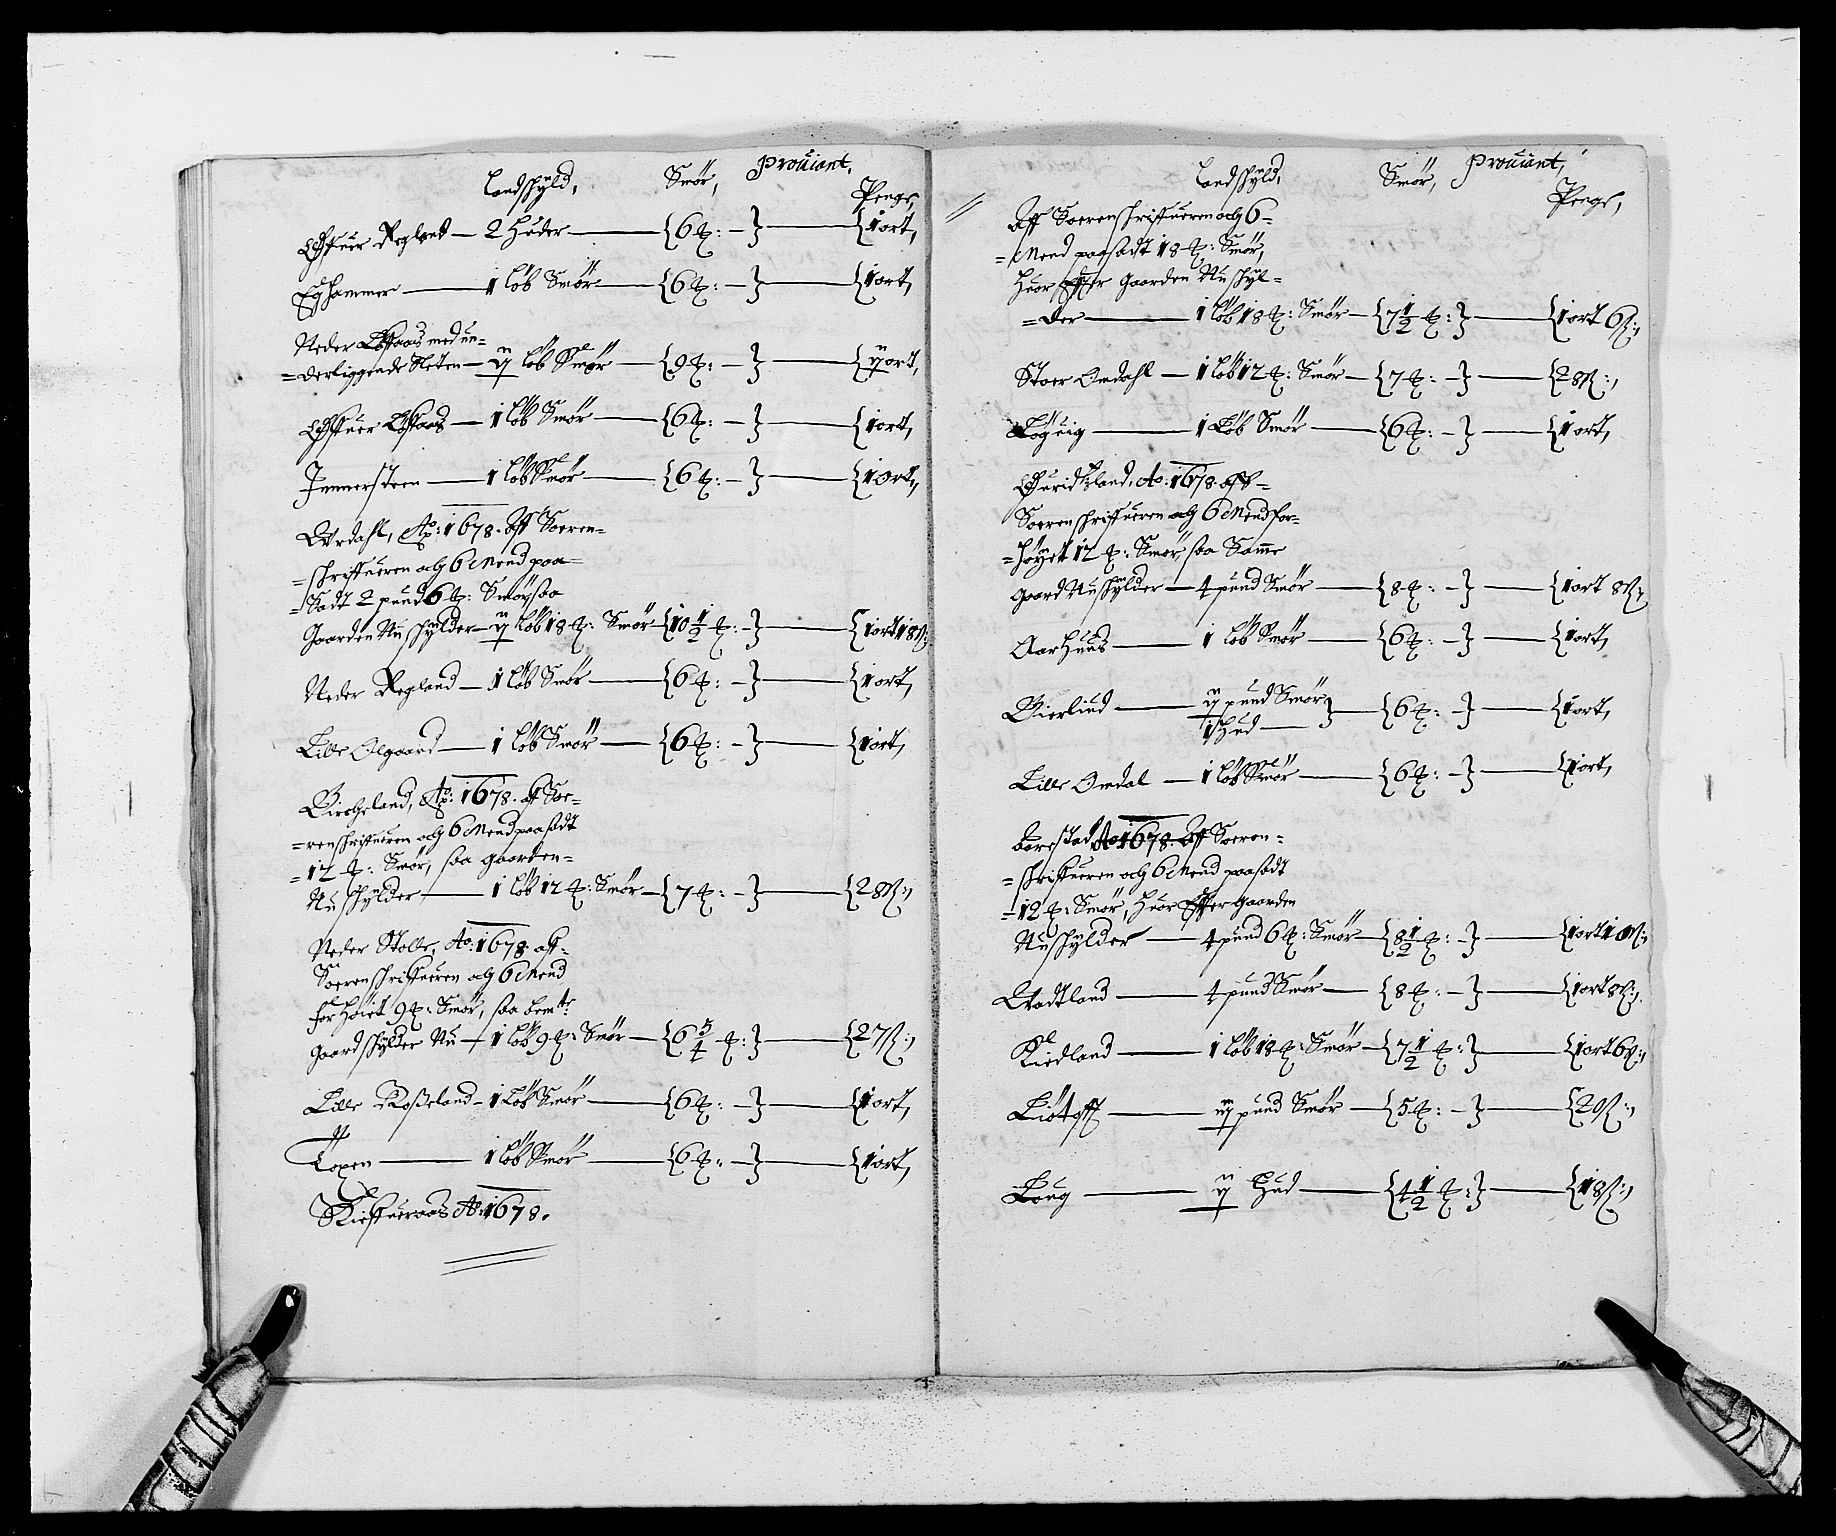 Landschyld, Smør, Proviant,
Penge,
Øffuer Regland — 2 huder — {6 ℔: — } — {1 ort,
Eghammer — 1 Løb Smør — {6 ℔: — } — {1 ort,
Neder Løffaas med un=
=derliggende Sleten — ij Løb Smør — {9 ℔: — } — {ij ort,
Øffuer Løffaas — 1 Løb Smør — {6 ℔: — } — {1 ort,
Immersteen — 1 Løb Smør — {6 ℔: — } — {1 ort,
Urdahl, Ao: 1678. Aff Soeren=
=schriffueren och 6 Mend paa=
=Sadt 2 pund 6 ℔: Smør saa
Gaarden Nu schylder — ij Løb 18 ℔: Smør {10 1/2 ℔: — } — {1 ort 18 ß:
Neder Regland — 1 Løb Smør — {6 ℔: — } — {1 ort,
Lille Ølgaard — 1 Løb Smør — {6 ℔: — } — {1 ort,
Bircheland, Ao: 1678. aff Soe=
=renschriffueren och 6 Mend paasadt
=12 ℔: Smør, saa gaarden=
Nu schylder — 1 løb 12 ℔: Smør — {7 ℔: — } — {28 ß:,
Neder Stolle, Ao: 1678. aff=
Soerenschriffueren och 6 Mend
forhøiet 9 ℔: Smør, saa bemte:
gaard schylder Nu — 1 løb 9 ℔: Smør — {6 3/4 ℔: } — {27 ß:,
Lille Roßeland — 1 Løb Smør — {6 ℔: — } — {1 ort,
Topen — 1 løb Smør — {6 ℔: — } — {1 ort,
Kieffueraas Ao: 1678.
Landschyld, Smør, Proviant,
Penge,
Aff Soerenschriffueren och 6=
=Mend paasadt 18 ℔: Smør,
huor effter Gaarden Nu schyl=
=der — 1 Løb 18 ℔: Smør — {7 1/2 ℔: } — {1 ort 6 ß:,
Stoer Omdahl — 1 Løb 12 ℔: Smør — {7 ℔: — } — {28 ß:,
Løguig — 1 Løb Smør — {6 ℔: — } — {1 ort,
Ao: 1678. aff=
Soerenschriffueren och 6 Mend for=
=høyet 12 ℔: Smør, saa Samme
gaard Nu schylder — 4 pund Smør — {8 ℔: — } — {1 ort 8 ß:,
Aarhuus — 1 Løb Smør — {6 ℔: — } — {1 ort,
Bierliud — ij pund Smør
1 Hud — } — {6 ℔: — } — {1 ort,
Lille Omdal — 1 løb Smør — {6 ℔: — } — {1 ort,
Barestad Ao 1678. Aff Soeren=
=schriffueren och 6 Mend paasadt
=12 ℔: Smør, huor effter Gaarden
Nu schylder — 4 pund 6 ℔: Smør — {8 1/2 ℔: — } — {1 ort 10 ß:,
Vadtland — 4 pund Smør — {8 ℔: — } — {1 ort 8 ß:,
Kiedland — 1 løb 18 ℔: Smør — {7 1/2 ℔: } — {1 ort 6 ß:,
— iij pund Smør — {5 ℔: — } — {20 ß:,
Loug — ij Hud — {4 1/2 ℔: } — {18 ß:,